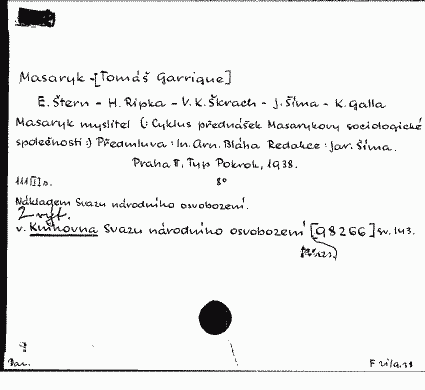 Masaryk -[Tomáš Garrigue]
E. Štern - H. Ripka - V. K. Škrach - J. Šíma - K. Galla
Masaryk myslitel (: Cyklus přednášek Masarykovy sociologické
společnosti :) Předmluva : In. Arn. Bláha Redakce : Jar. Šíma.
Praha II, Typ Pokrok, 1938.
111[I]s. 8°
Nákladem Svazu národního osvobození.
2 výt.
v. Knihovna Svazu národního osvobození [98266] sv. 143.
Dar.